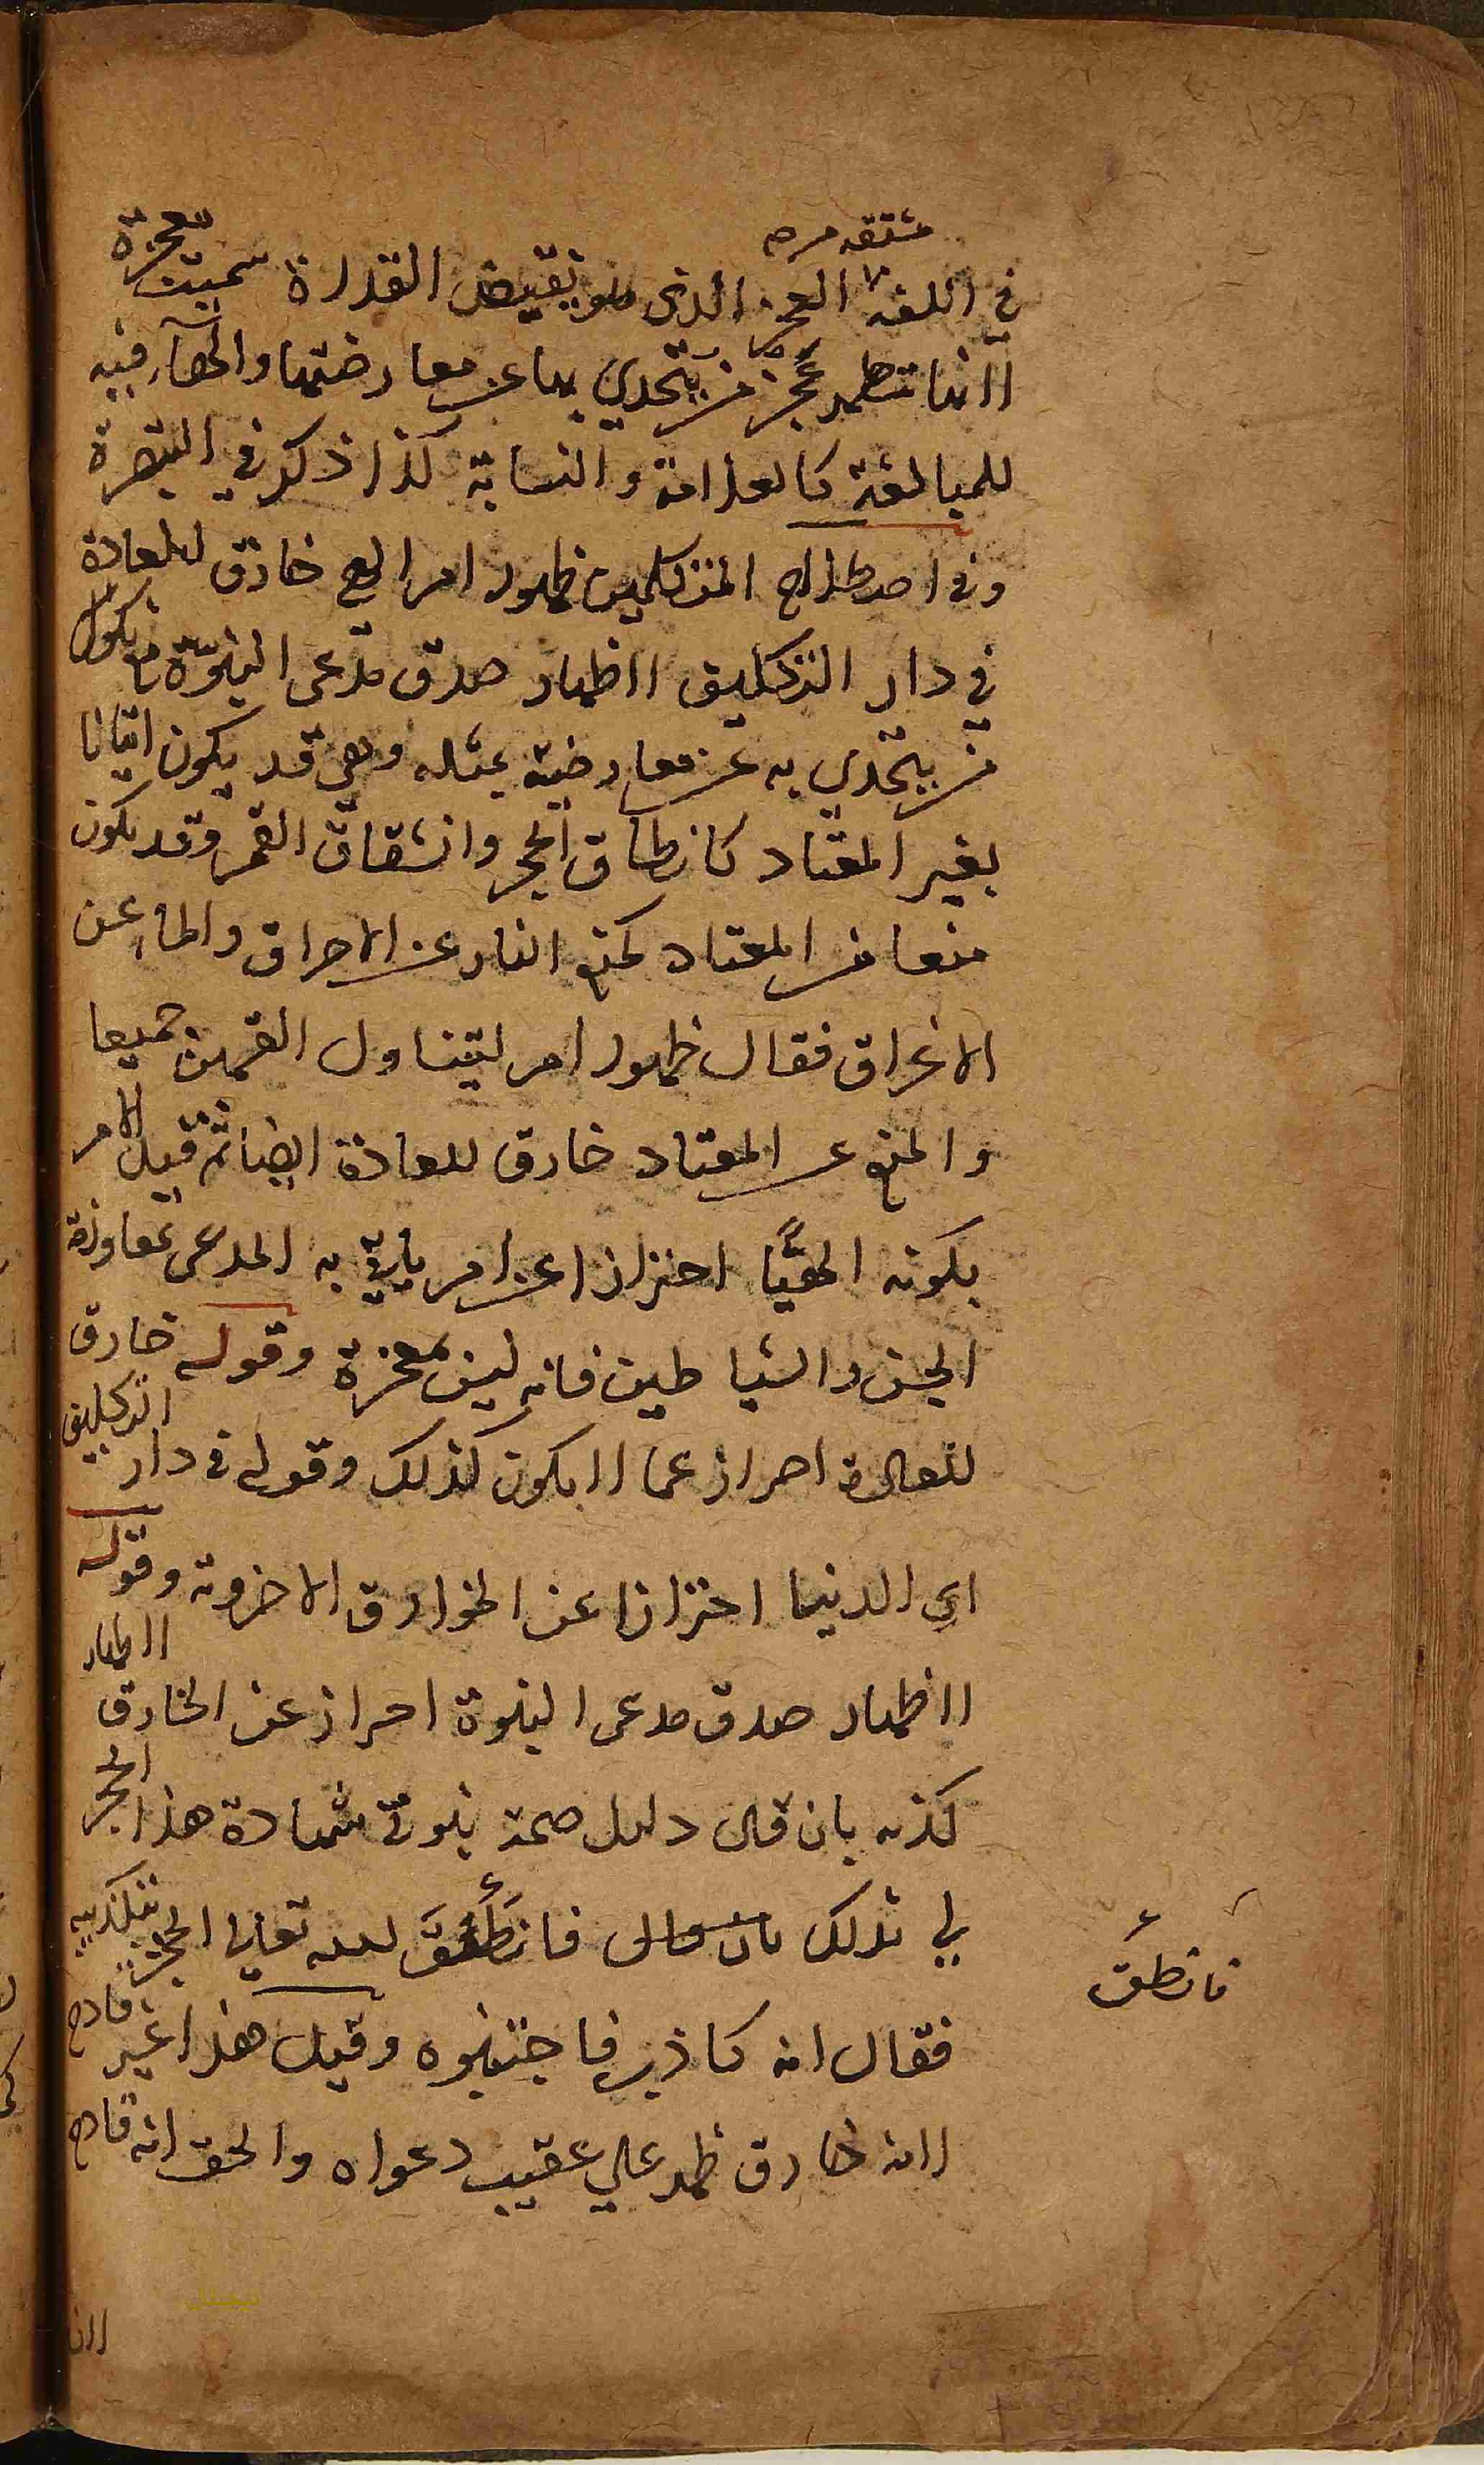 مشتقه من صح
في اللغة العجز الذي هو نقيض القدرة سميت معجزة
لانها تظهر عجز من يتحدي بها عن معارضتها والهاء فيه
للمبالغة كالعلامة والنسابة كذا ذكر في التبصرة
وفي اصطلاح المتكلمين ظهور امر الهي خارق للعادة
في دار التكليف لاظهار صدق مدعي النبوة مع نكول
من يتحدي به عن معارضته بمثله وهي قد يكون اتيانا
بغير المعتاد كانطاق الحجر وانشقاق القمر وقد يكون
منعا من المعتاد كمنع النار عن الاحراق والماء عن
الاغراق فقال ظهور امر ليتناول القسمين جميعا
والمنع عن المعتاد خارق للعادة ايضا ثم قيد الامر
بكونه الهيًّا احترازا عن امر ياتي به المدعي بمعاونة
الجن والشياطين فانه ليس بمعجزة وقوله خارق
للعادة احراز عما لا يكون كذلك وقوله في دار التكليف
اي الدنيا احترازا عن الخوارق الاخروية وقوله
لاظهار صدق مدعي النبوة احراز عن الخارق لاظهار
كذبه بان قال دليل صحة نبوتي شهادة هذا الحجر
لي بذلك بان قال فانطَقَ الله تعالي الحجر بتكذيبه
فانطق
فقال انه كاذب فاجتنبوه وقيل هذا غير قادح
لانه خارق ظهر علي عقيب دعواه والحق انه قادح
لانا